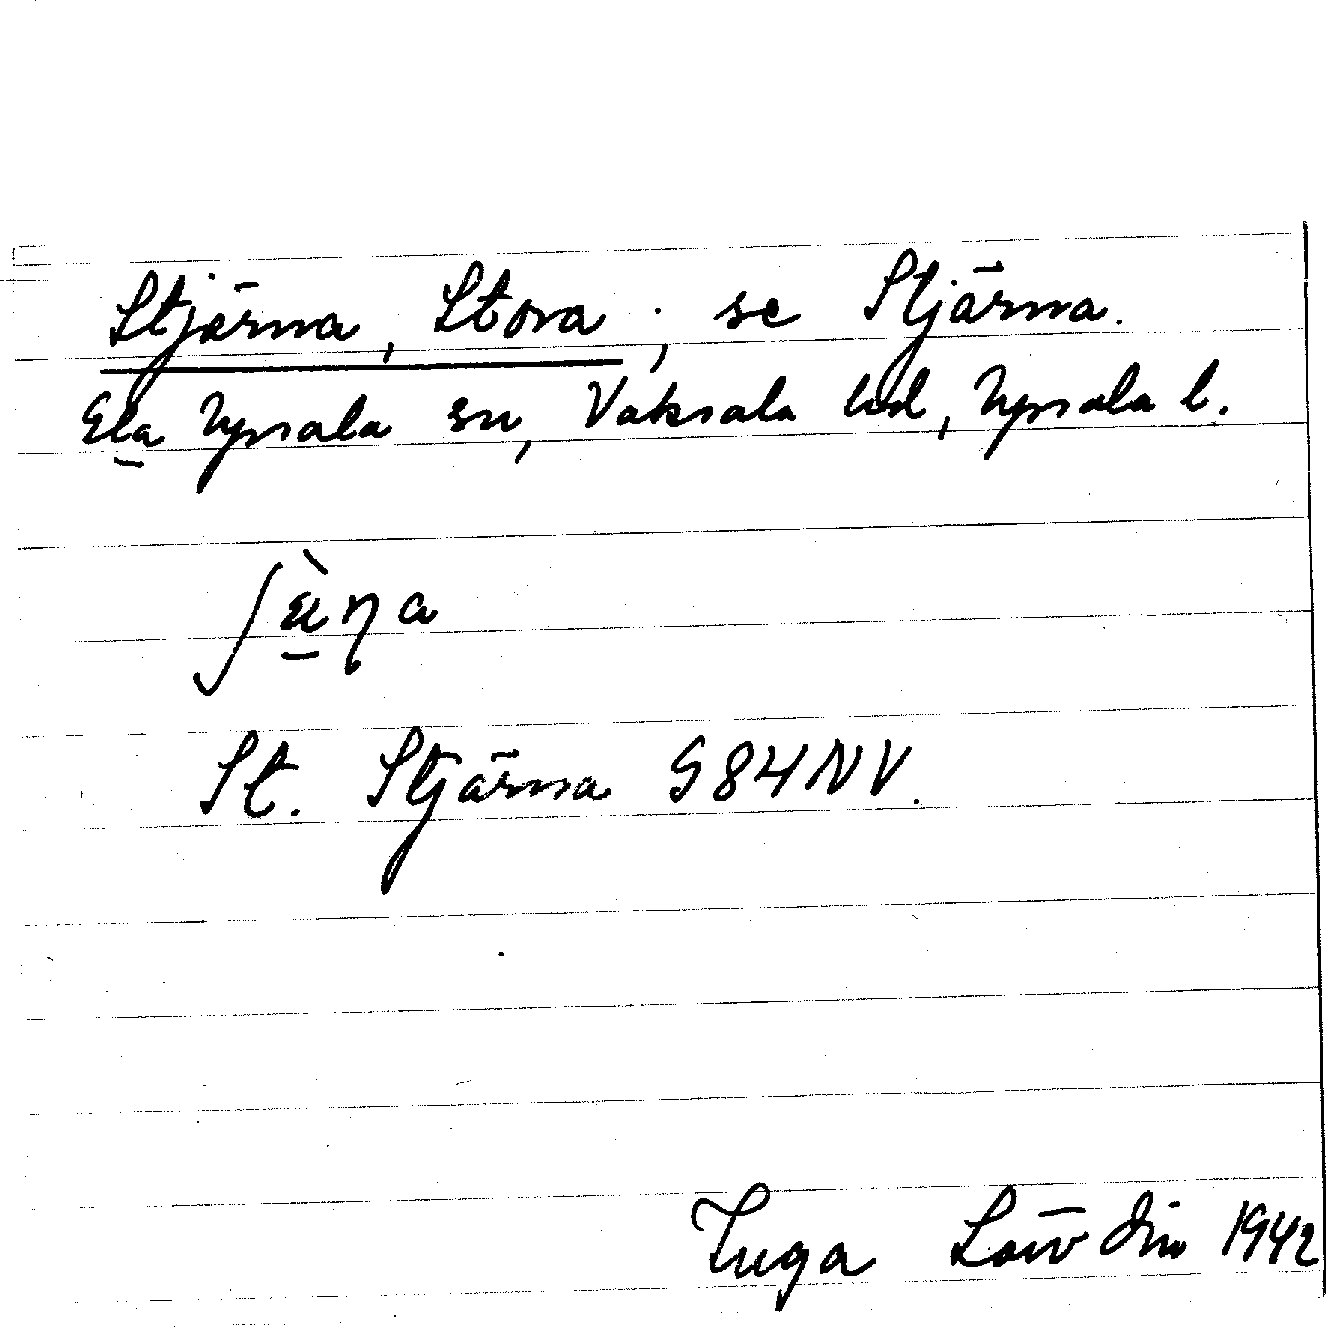 Stjärna, Stora ; se Stjärna.
Gla Upsala sn, Vaksala hd, Upsala l.
ʃæ̀ɳa
St. Stjärna G84NV.
Inga Lövdin 1942